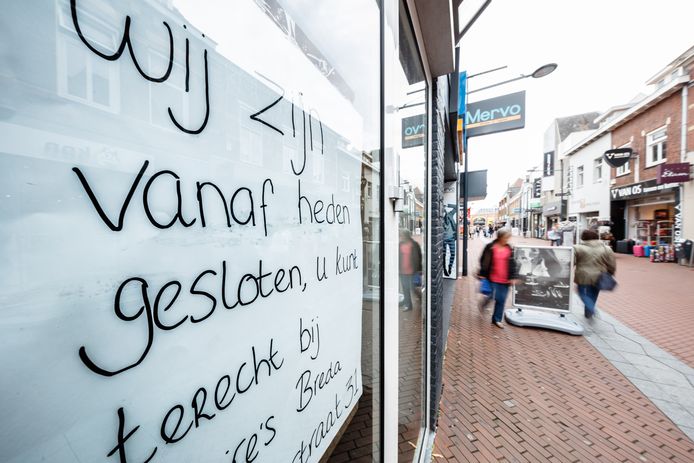 wij zijn
vanaf heden
gesloten, u kunt
terecht bij
Breda
31
Mervo
VAN OS